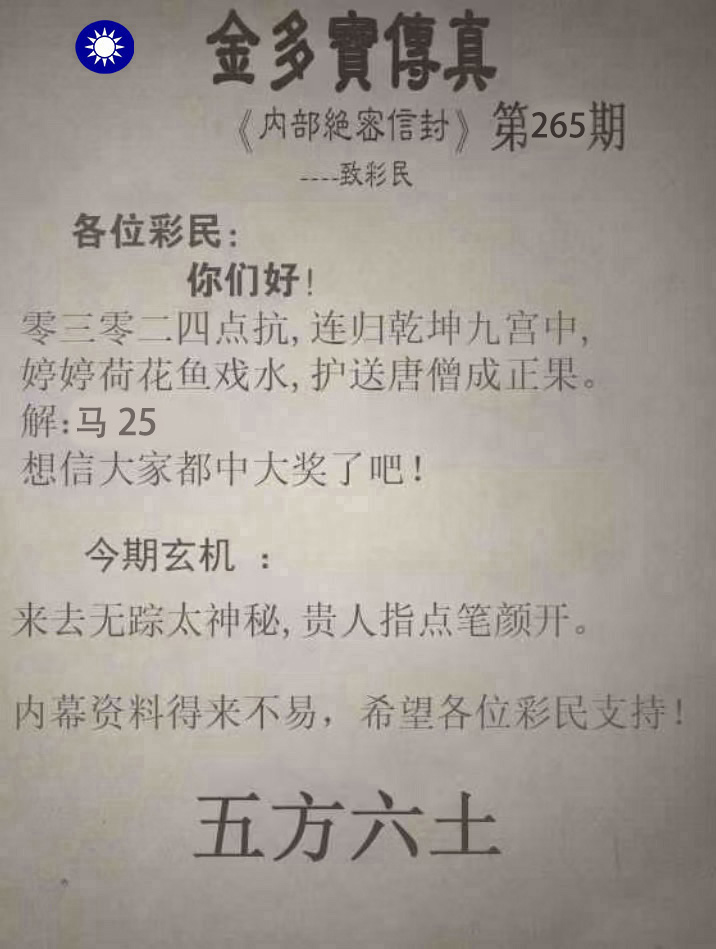 金多寶傳真
《内部絶密信封》第265期
----致彩民
各位彩民:
你们好!
零三零二四点抗,连归乾坤九宫中,
婷婷荷花鱼戏水,护送唐僧成正果。
解:马 25
想信大家都中大奖了吧!
今期玄机 :
来去无踪太神秘,贵人指点笔颜开。
内幕资料得来不易，希望各位彩民支持!
五方六土